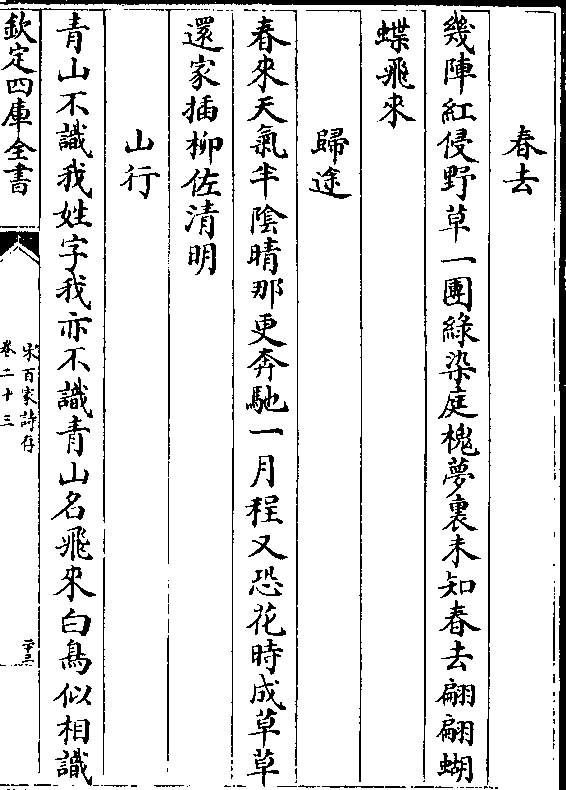 春去
幾陣紅侵野草一團綠染庭槐夢裏未知春去翩翩蝴
蝶飛來
歸途
春來天氣半陰晴那更奔馳一月程又恐花時成草草
還家插柳佐清明
山行
青山不識我姓字我亦不識青山名飛來白鳥似相識
欽定四庫全書
宋百家詩存
卷二十三
二十三